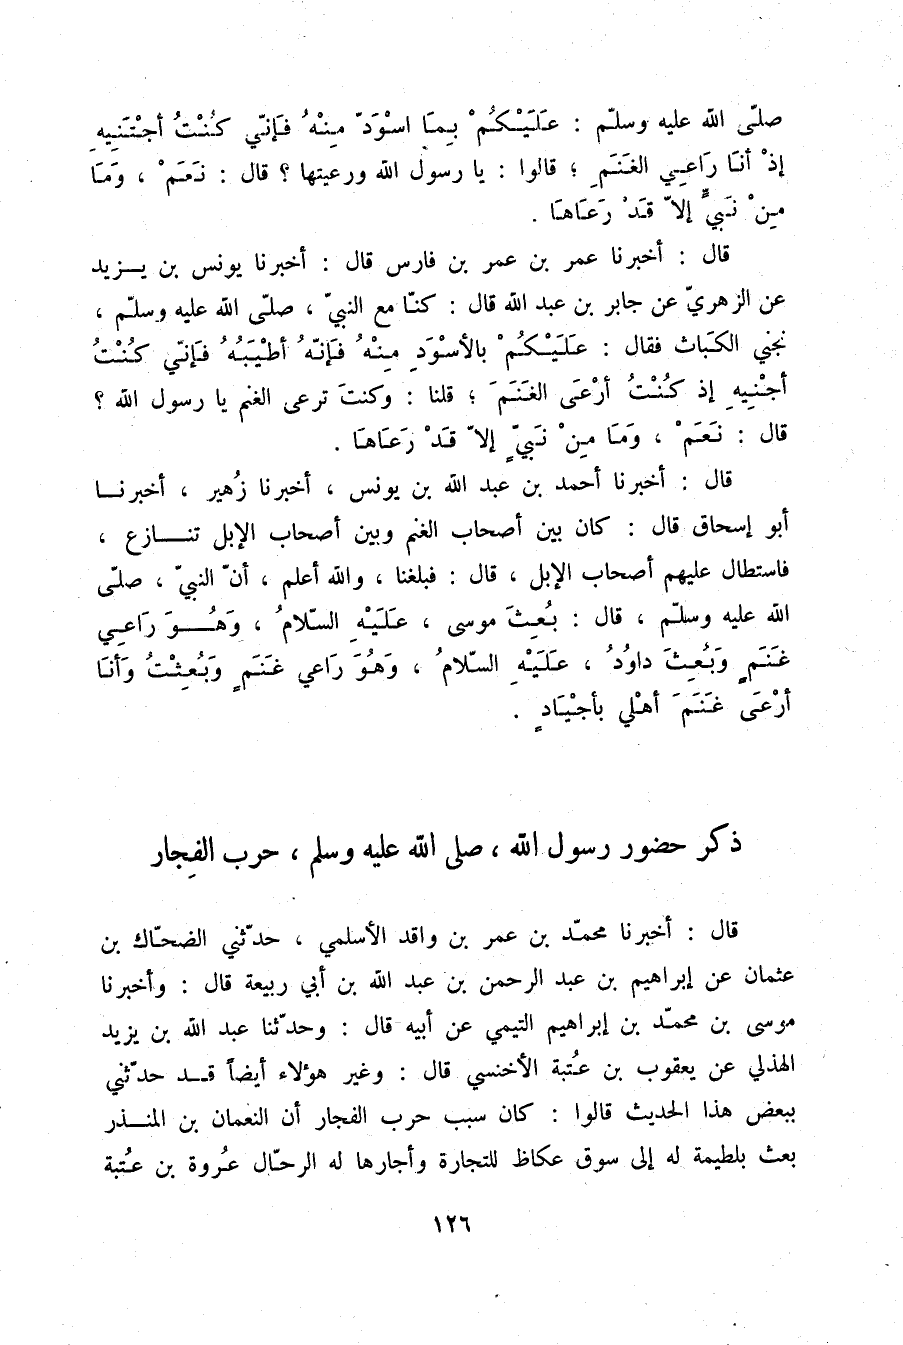 صلّى الله عليه وسلّم : عَلَيْكُمْ بِمَا اسْوَدّ مِنْهُ فَإنّي كُنْتُ أجْتَنِيهِ
إذْ أنَا رَاعِي الغَنَمِ ؛ قالوا : يا رسول الله ورعيتها ؟ قال : نَعَمْ ، وَمَا
مِنْ نَبيٍّ إلاّ قَدْ رَعَاهَا .
قال : أخبرنا عمر بن عمر بن فارس قال : أخبرنا يونس بن يزيد
عن الزهريّ عن جابر بن عبد الله قال : كنّا مع النبيّ ، صلّى الله عليه وسلّم ،
نجني الكَبَاث فقال : عَلَيْكُمْ بالأسْوَدِ مِنْهُ فَإنّهُ أطْيَبُهُ فَإنّي كُنْتُ
أجْنِيهِ إذ كُنْتُ أرْعَى الغَنَمَ ؛ قلنا : وكنتَ ترعى الغنم يا رسول الله ؟
قال : نَعَمْ ، وَمَا مِنْ نَبيّ إلاّ قَدْ رَعَاهَا .
قال : أخبرنا أحمد بن عبد الله بن يونس ، أخبرنا زُهير ، أخبرنا
أبو إسحاق قال : كان بين أصحاب الغنم وبين أصحاب الإبل تنازع ،
فاستطال عليهم أصحاب الإبل ، قال : فبلغنا ، والله أعلم ، أنّ النبيّ ، صلّى
الله عليه وسلّم ، قال : بُعِثَ موسى ، عَلَيْهِ السّلامُ ، وَهُوَ رَاعِي
غَنَمٍ وَبُعِثَ داوُدُ ، عَلَيْهِ السّلامُ ، وَهُوَ رَاعي غَنَمٍ وَبُعِثْتُ وَأنَا
أرْعَى غَنَمَ أهْلي بأجْيَادٍ .
ذكر حضور رسول الله ، صلى الله عليه وسلم ، حرب الفِجار
قال : أخبرنا محمّد بن عمر بن واقد الأسلمي ، حدّثني الضحّاك بن
عثمان عن إبراهيم بن عبد الرحمن بن عبد الله بن أبي ربيعة قال : وأخبرنا
موسى بن محمّد بن إبراهيم التيمي عن أبيه قال : وحدّثنا عبد الله بن يزيد
الهذلي عن يعقوب بن عُتبة الأخنسي قال : وغير هؤلاء أيضاً قد حدّثني
ببعض هذا الحديث قالوا : كان سبب حرب الفجار أن النعمان بن المنذر
بعث بلطيمة له إلى سوق عكاظ للتجارة وأجارها له الرحّال عُروة بن عُتبة
١٢٦